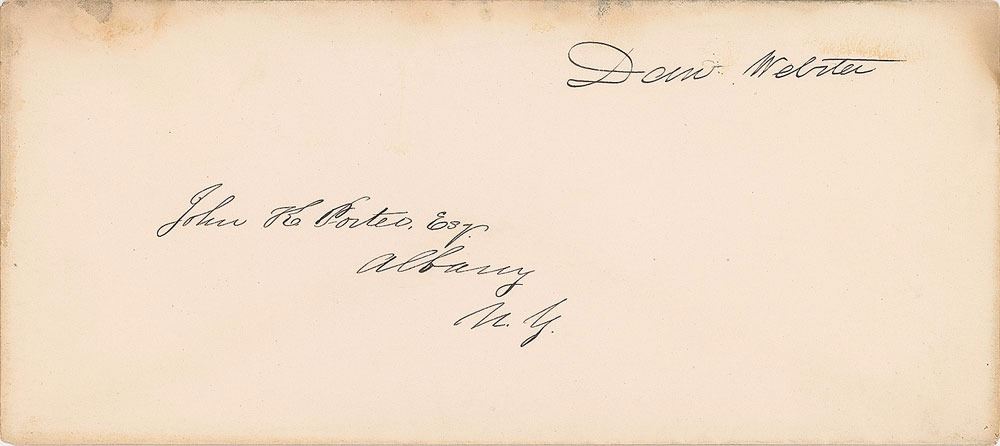 Danl Webster
John K Porter, Esq.
Albany
N. Y.